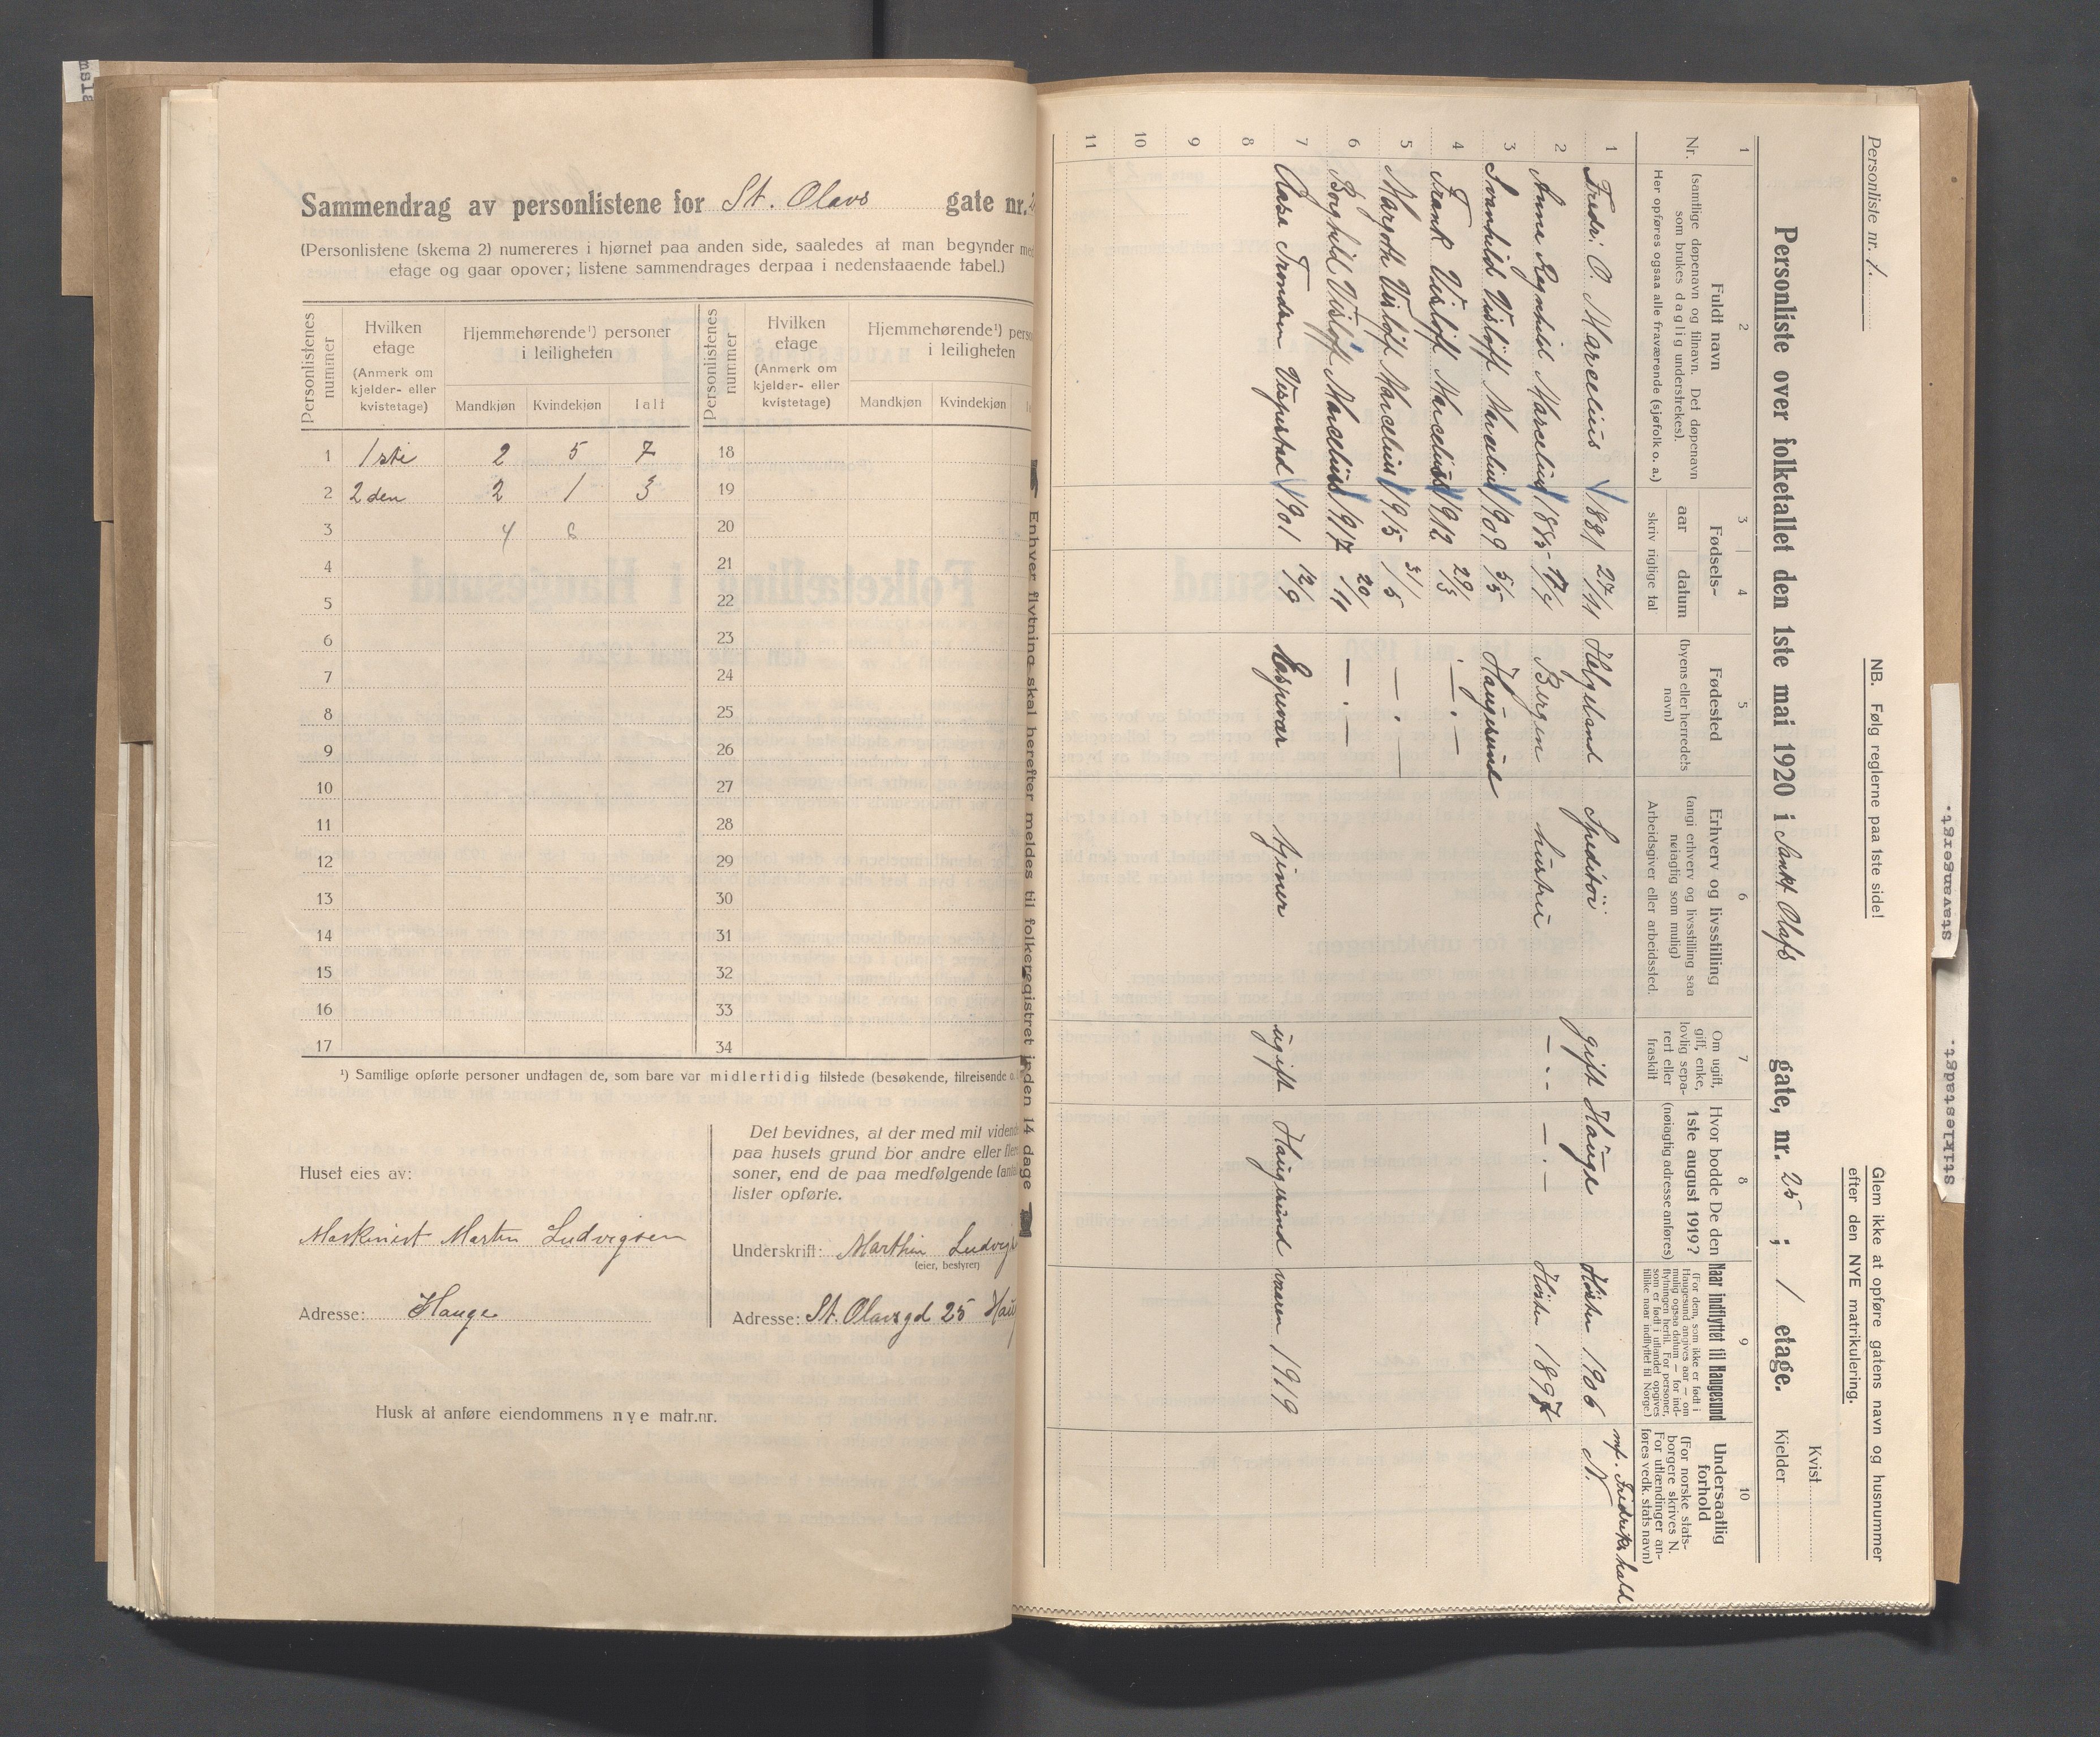 Sammendrag av personlistene for St. Olavs gate nr.
(Personlistene (skema 2) numereres i hjørnet paa anden side, saaledes at man begynder med
etage og gaar opover; listene sammendrages derpaa i nedenstaaende tabel.)
Personlistenes nummer
Hvilken etage (Anmerk om kjelder- eller kvistetage)
Hjemmehørende¹) personer i leiligheten
Mandkjøn Kvindekjøn Ialt
Personlistenes nummer
Hvilken etage (Anmerk om kjelder- eller kvistetage)
Hjemmehørende¹) perso
i leiligheten
Mandkjøn Kvindekjøn
1 1ste 2 5 7 18
2 2den 2 1 3 19
3 4 6 20
4 21
5 22
6 23
7 24
8 25
9 26
10 27
11 28
12 29
13 30
14 31
15 32
16 33
17 34
¹) Samtlige opførte personer undtagen de, som bare var midlertidig tilstede (besøkende, tilreisende o.
Huset eies av:
Maskinist Martin Ludvigsen
Adresse: Hauge
Det bevidnes, at der med mit vidende
paa husets grund bor andre eller flere
soner, end de paa medfølgende (antal
lister opførte.
Underskrift: Marthin Ludvig
(eier, bestyrer)
Adresse: St. Olavsgd 25 Haug
Husk at anføre eiendommens nye matr.nr.
Enhver flytning skal herefter meldes til folkeregistret inden 14 dage
Personliste nr. 1.
NB. Følg reglerne paa 1ste side!
Glem ikke at opføre gatens navn og husnummer
efter den NYE matrikulering.
Personliste over folketallet den 1ste mai 1920 i Sankt Olafs gate, nr. 25; 1 etage.
Kvist
Kjelder
1 2 3 4 5 6 7 8 9 10
Nr.
Fuldt navn
(samtlige døpenavn og tilnavn. Det døpenavn
som brukes daglig understrekes).
Her opføres ogsaa alle fraværende (sjøfolk o. a.)
Fødsels-
aar datum
skriv rigtige tal
Fødested
(byens eller herredets
navn)
Erhverv og livsstilling
(angi erhverv og livsstilling saa
nøiagtig som mulig)
Arbeidsgiver eller arbeidssted.
Om ugift,
gift, enke,
lovlig sepa-
rert eller
fraskilt
Hvor bodde De den
1ste august 1919?
(nøiagtig adresse anføres)
Naar indflyttet til Haugesund
(For dem, som ikke er født i
Haugesund angives aar — om
mulig ogsaa datum — for ind-
flytningen hertil. For personer,
som er født i utlandet opgives
tillike naar indflyttet til Norge.)
Undersaatlig
forhold
(For norske stats-
borgere skrives N.
For utlændinger an-
føres vedk. stats navn)
mp. Fredrikshald
1 Fredr. O. Marcelius 1881 27/11 Helgeland Speditör gift Hauge Hösten 1906 N.
2 Anne Ragnhild Marcelius 1885 17/7 Bergen hustru — . . — — . — Hösten 1897
3 Svanhild Visløff Marcelius 1909 5/5 Haugesund
4 Frank Visløff Marcelius 1912 29/3 — . —
5 Margoth Visløff Marcelius 1915 31/5 — . —
6 Borghild Visløff Marcelius 1917 20/11 — . —
7 Aasa Trondsen Vespestad 1901 12/9 Espevær tjener ugift Haugesund vaaren 1919
8
9
10
11
Stavangergt.
Stiklestadgt.